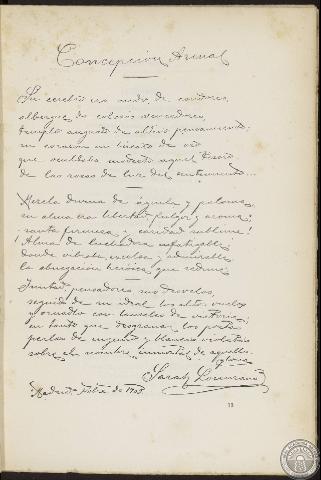 Concepción Arenal
Su cerebro era nido de condores,
albergue de colosos vencedores,
templo augusto de altivo pensamiento;
su corazon un búcaro de oro
que ocultaba modesto aquel tesoro
de las rosas de luz del sentimiento...
Mezcla divina de águila y paloma,
su alma era libertad, fulgor y aroma;
santa firmeza y caridad sublime!
Alma de luchadora infatigable
donde vibraba, excelsa y admirable,
la abnegación heróica que redime.
Imitad, pensadores, sus desvelos,
seguid de su ideal los altos vuelos
y ornadla con laureles de victoria;
en tanto que desgranan los poetas
perlas de argento y blancas violetas
sobre el nombre inmortal de aquella gloria
Sarah Lorenzana
Madrid, de 1908.